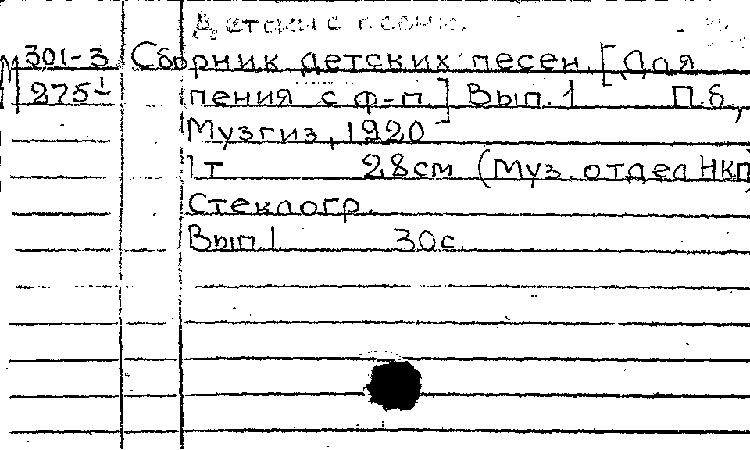 Детские песни.
М 301-3 Сборник детских песен. [Для
275¹ пения с ф-п.] Вып. 1 П.б.,
Музгиз, 1920
1 т 28 см (Муз. отдел НКП)
Стеклогр.
Вып. 1 30 с.